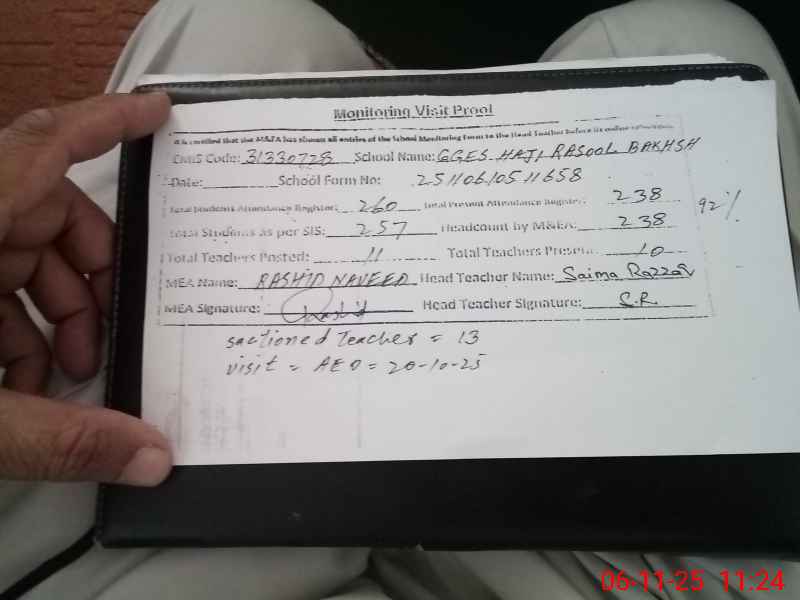 Monitoring Visit Proof
It is certified that the MEA has shown all entries of the School Monitoring Form to the Head Teacher before its online
EMIS Code: 31330728 School Name: GGES HAJI RASOOL BAKHSH
Date: School Form No: 25110610511658
Total Students Attendance Register: 260 Total Present Attendance Register: 238 92%
Total Students as per SIS: 257 Headcount by M&EA: 238
Total Teachers Posted: 11 Total Teachers Present: 10
MEA Name: RASHID NAVEED Head Teacher Name: Saima Razzaq
MEA Signature: Rashid Head Teacher Signature: S.R.
sactioned Teacher = 13
visit = AEO = 20-10-25
06-11-25 11:24